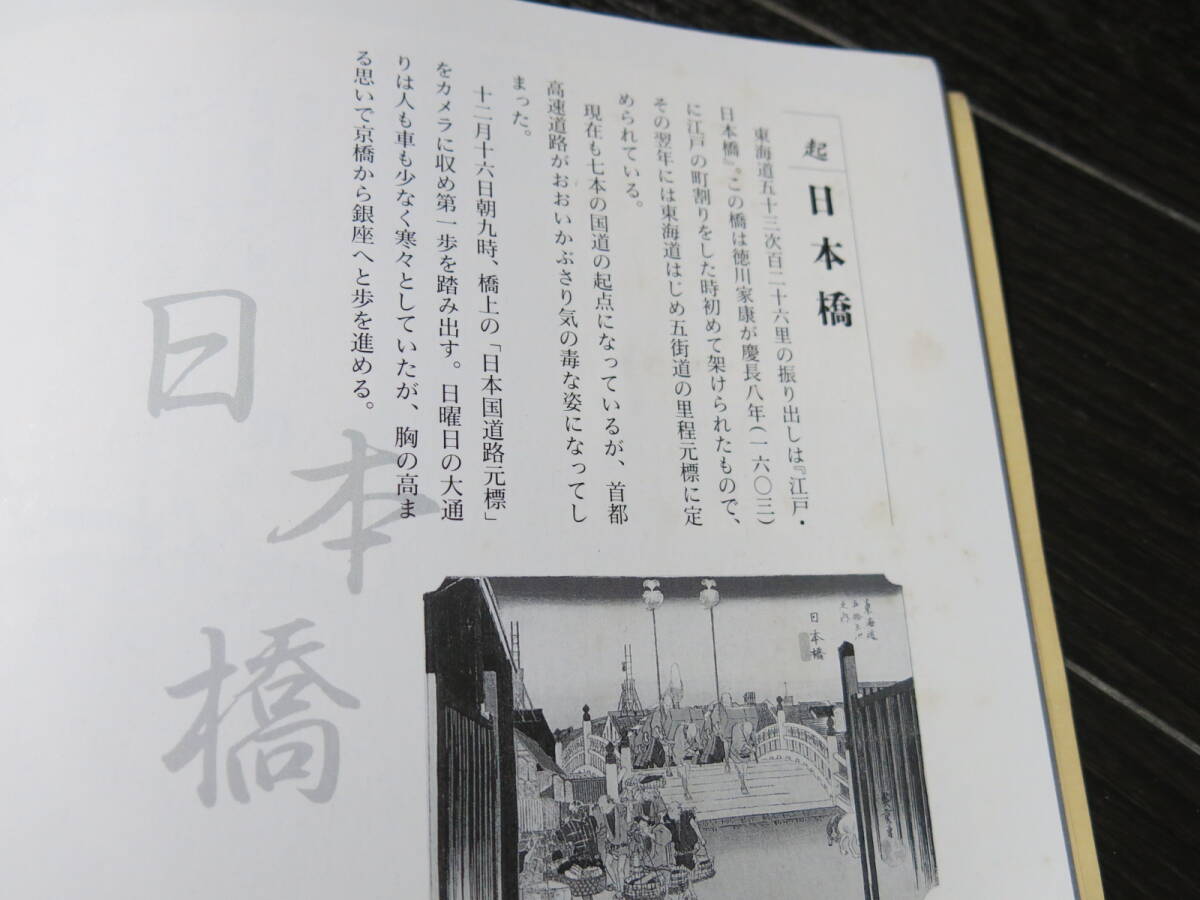 起 日本橋
東海道五十三次百二十六里の振り出しは『江戸・
日本橋』。この橋は徳川家康が慶長八年(一六〇三)
に江戸の町割りをした時初めて架けられたもので、
その翌年には東海道はじめ五街道の里程元標に定
められている。
現在も七本の国道の起点になっているが、首都
高速道路がおおいかぶさり気の毒な姿になってし
まった。
十二月十六日朝九時、橋上の「日本国道路元標」
をカメラに収め第一歩を踏み出す。日曜日の大通
りは人も車も少なく寒々としていたが、胸の高ま
る思いで京橋から銀座へと歩を進める。
日本橋
東海道
五拾三次
之内
日本橋